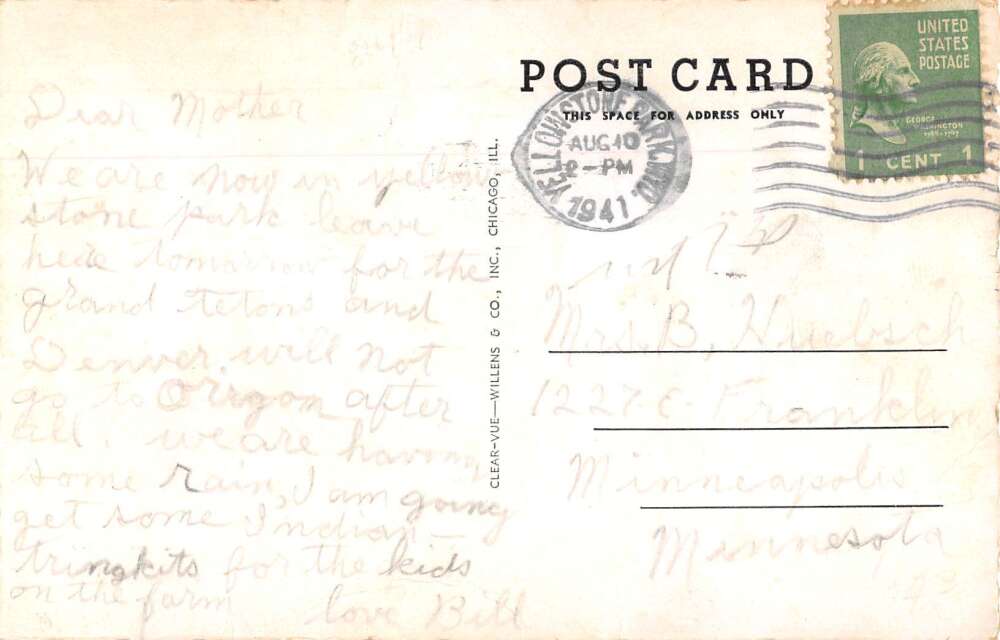 Dear Mother
We are now in yellow
stone park leave
here tomorrow for the
grand tetons and
Denver. will not
go to Orrgon after
all. we are having
some rain, I am going
get some Indian—
tringkits for the kids
on the farm
love Bill
CLEAR-VUE—WILLENS & CO., INC., CHICAGO, ILL.
POST CARD
THIS SPACE FOR ADDRESS ONLY
YELLOWSTONE PARK, WYO.
AUG 10
2-PM
1941
UNITED
STATES
POSTAGE
GEORGE
WASHINGTON
1789-1797
1 CENT 1
Mrs. B. Huebsch
1227 E- Franklin
Minneapolis
Minnesota